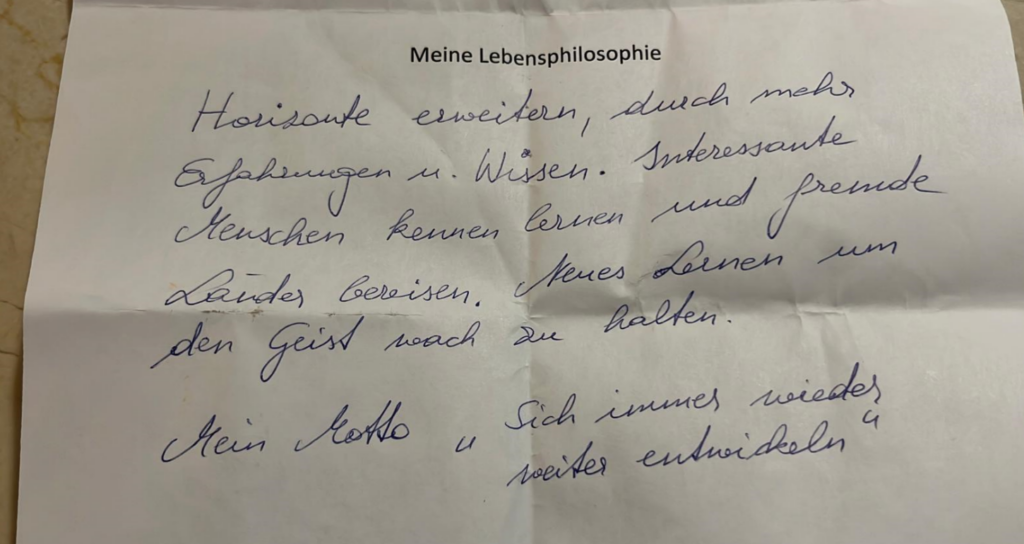 Meine Lebensphilosophie
Horizonte erweitern, durch mehr
Erfahrungen u. Wissen. Interessante
Menschen kennen lernen und fremde
Länder bereisen. Neues Lernen um
den Geist wach zu halten.
Mein Motto „ Sich immer wieder
weiter entwickeln“